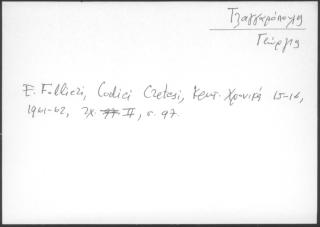 Τζαγγαρόπουλος
Γεώργης
E. Follieri, Codici Cretesi, Κρητ. Χρονικά 15-16,
1961-62, τχ. II, σ. 97.